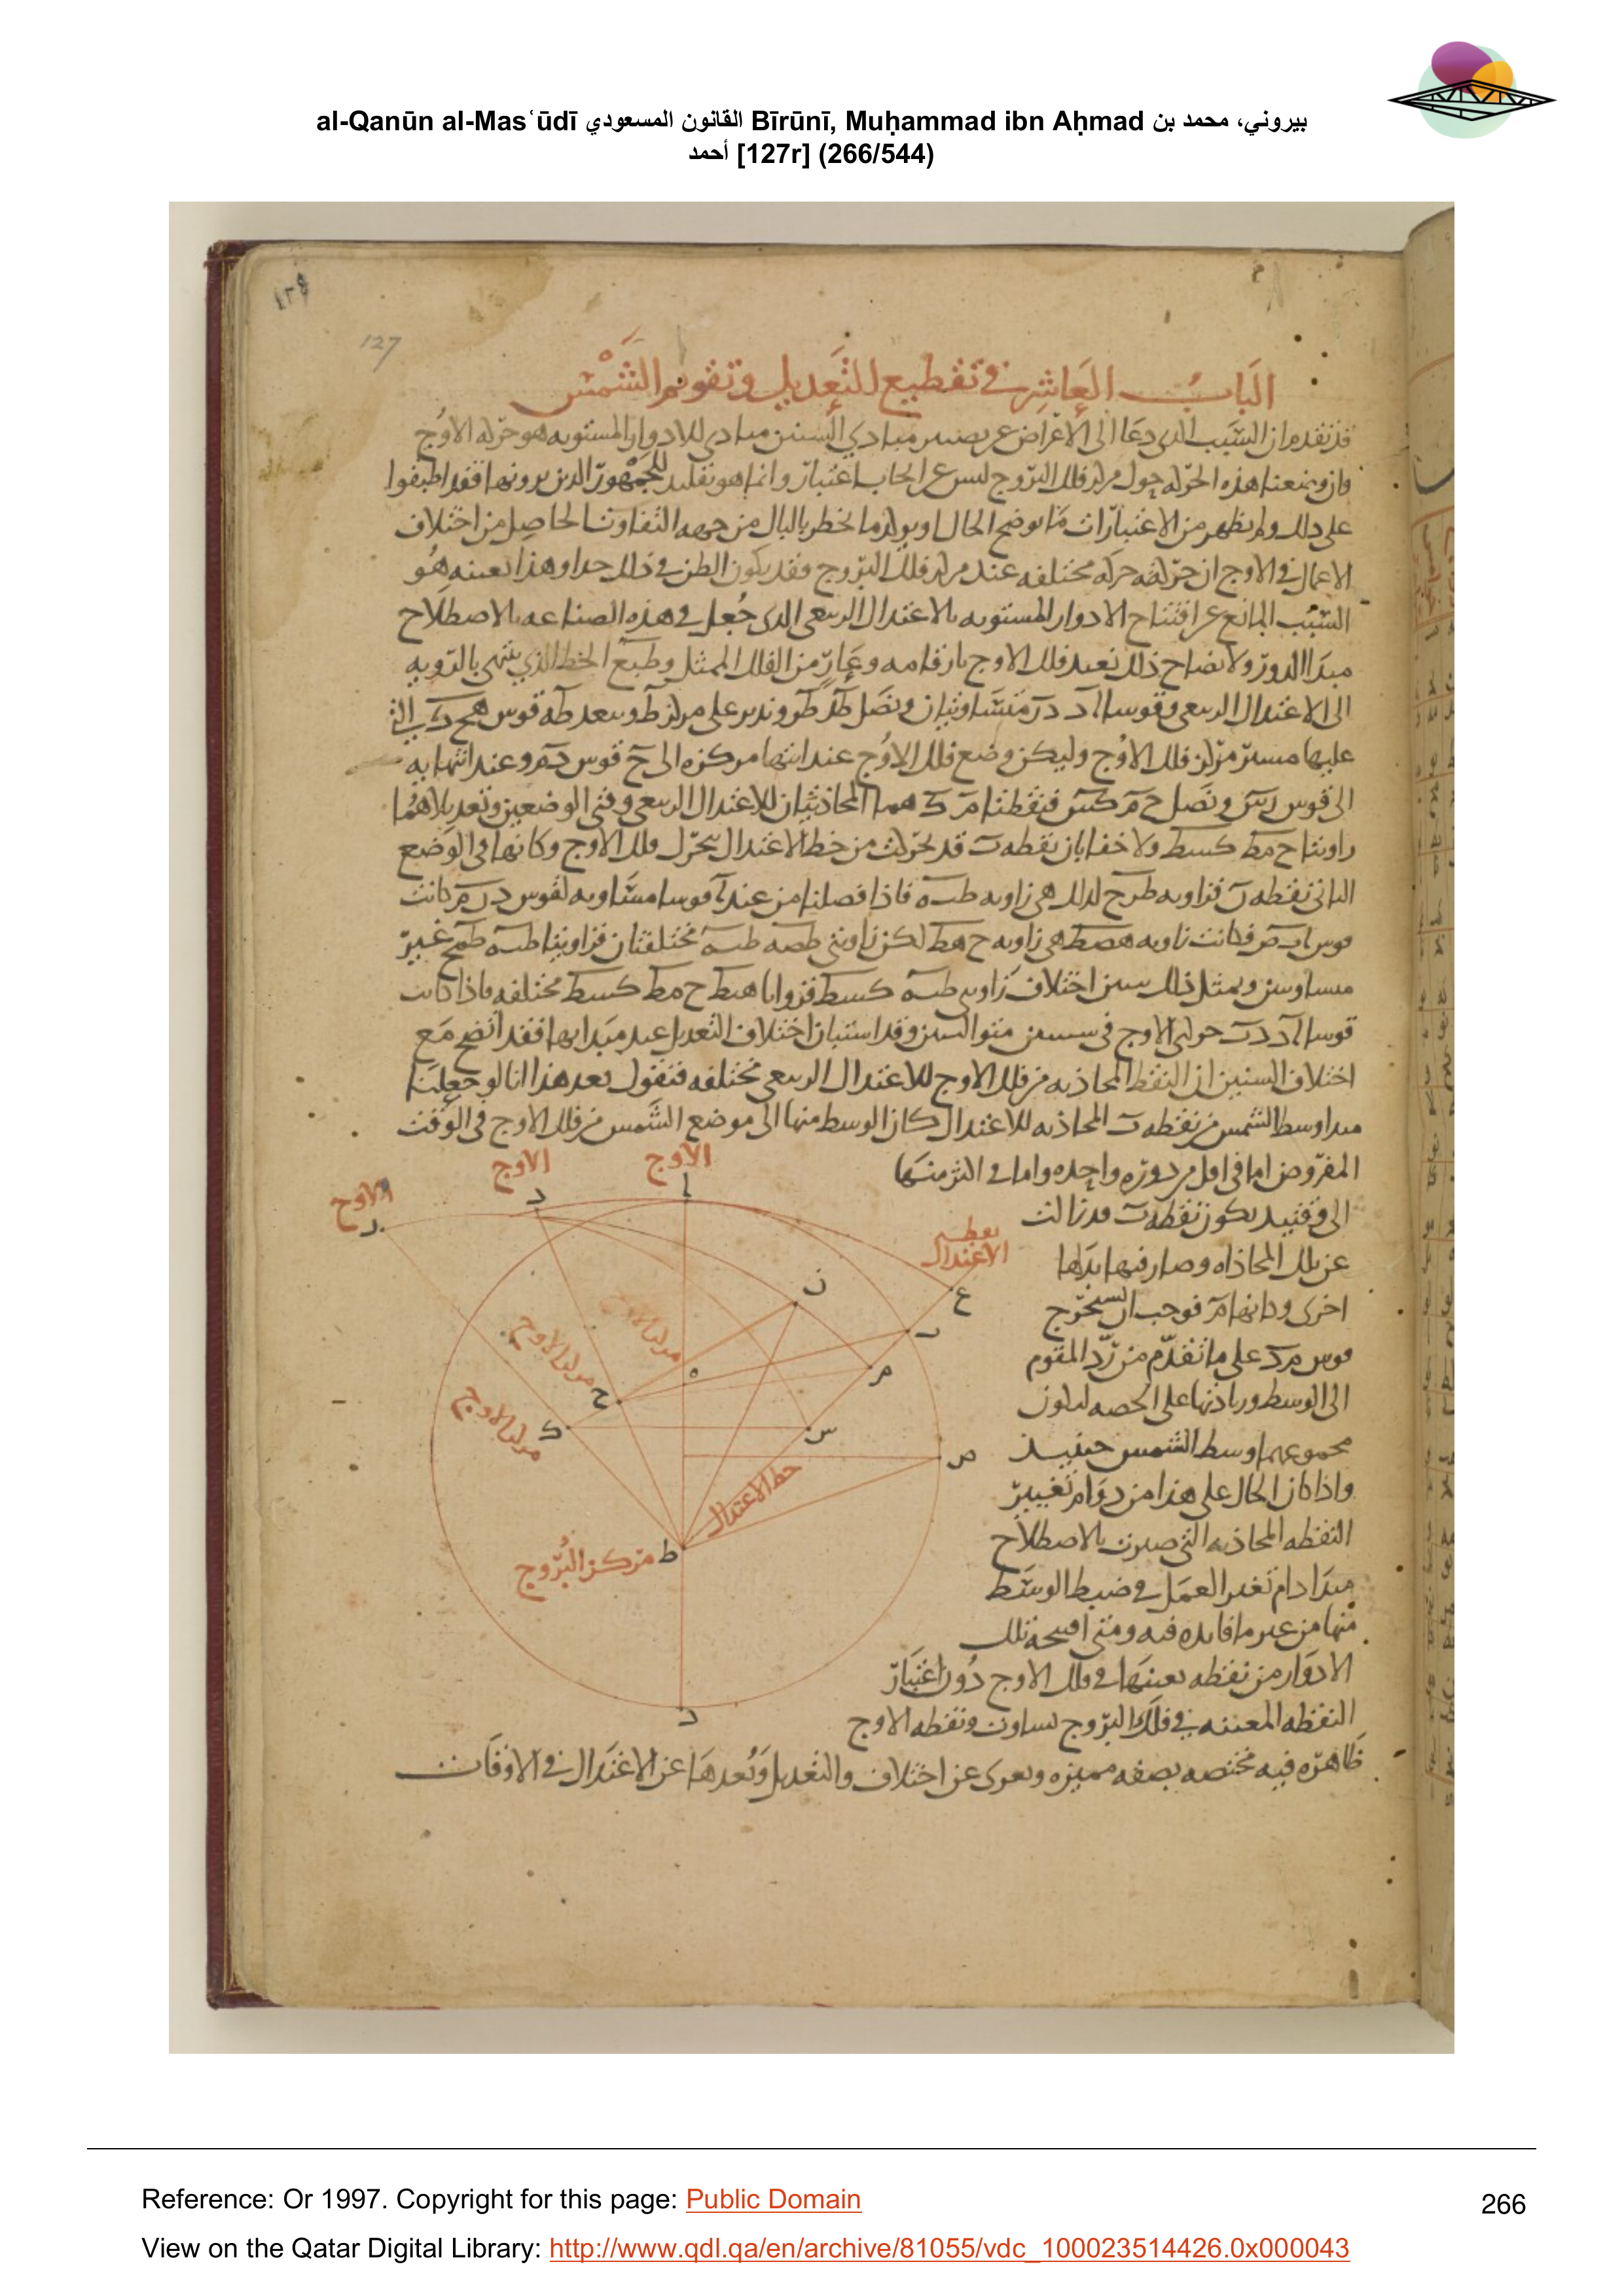 al-Qanūn al-Mas‘ūdī القانون المسعودي Bīrūnī, Muḥammad ibn Aḥmad بيروني، محمد بن
أحمد [127r] (266/544)
١٢٩
127
الباب العاشر في تقطيع التعديل وتقويم الشمس
قد تقدم ان السبب الذي دعا الى الاعراض عن تصيير مبادي السنين مبادي للادوار المستويه هو حركه الاوج
وان وضعنا هذه الحركه حول مركز فلك البروج ليس عن ايجاب اعتبار وانما هو تقليد للجمهور الذين يرونها فقد اطبقوا
على ذلك ولم يظهر من الاعتبارات ما يوضح الحال او يولد ما يخطر بالبال من جهه التفاوت الحاصل من اختلاف
الاعمال في الاوج ان حركته حركه مختلفه عند مركز فلك البروج فقد يكون الظن في ذلك جدا وهذا بعينه هو
السبب المانع عن افتتاح الادوار المستويه بالاعتدال الربيعي الذي جعل في هذه الصناعه بالاصطلاح
مبدا الدور ولايضاح ذلك نعيد فلك الاوج بارقامه من الفلك الممثل الخط الذي ينتهي بالرويه
الى الاعتدال الربيعي وقوسا اد در متساويتان ونصل وندير على مركز ط وببعد طه قوس هح ك التي
عليها مسير مركز فلك الاوج وليكن وضع فلك الاوج عند انتها مركزه الى ح قوس دم وعند انتهايه
الى قوس رس ونصل ح م ك س فنقطتا هما المحاذيتان للاعتدال الربيعي في الوضعين وتعديلاهما
زاويتا ح م ط ك س ط ولا خفا بان نقطه قد تحركت من خط الاعتدال بتحرك فلك الاوج وكانها في الوضع
الثاني نقطه ن فزاويه لذلك هي زاويه فاذا فصلنا من عند ا قوسا مساويه لقوس كانت
قوس فكانت زاويه هي زاويه لكن زاويتي مختلفتان فزاويتا غير
متساويتين وبمثل ذلك يتبين اختلاف زاويتي ك س ط فزوايا ح م ط ك س ط مختلفه فاذا كانت
قوسا حركتي الاوج في سنتين متواليتين وقد استبان اختلاف التعديل عند مبدايهما فقد اتضح مع
اختلاف السنين ان النقط المحاذيه من فلك الاوج للاعتدال الربيعي مختلفه فنقول بعد هذا انا لو جعلنا
مبدا وسط الشمس من نقطه ب المحاذيه للاعتدال كان الوسط منها الى موضع الشمس من فلك الاوج في الوقت
المفروض اما في اقل من دوره واحده واما في اكثر منها
الى وقتيذ يكون نقطه ب قد زالت
عن تلك المحاذاه وصار فيها بدلها
اخرى وكانها م فوجب ان نستخرج
قوس م د على ما تقدم من رد المقوم
الى الوسط وزيادتها على الحصه ليكون
مجموعهما وسط الشمس حينيذ
واذا كان الحال على هذا من دوام تغيير
النقطه المحاذيه التي صيرت بالاصطلاح
مبدا دام تغير العمل في ضبط الوسط
منها من غير ما فايده فيه ومتى افتتحت تلك
الادوار من نقطه بعينها في فلك الاوج دون اعتبار
النقطه المعينه في فلك البروج تساوت ونقطه الاوج
ظاهره فيه مختصه بصفه مميزه وتعرى عن اختلاف والتعديل وبعدها عن الاعتدال في الاوقات
الاوج
الاوج
الاوج
ا
د
ر
نقطه
الاعتدال
ع
ن
ب
م
ه
ح
ك
س
ص
ط
ج
مركز الاوج
مركز الاوج
مركز الاوج
خط الاعتدال
مركز البروج
Reference: Or 1997. Copyright for this page: Public Domain
266
View on the Qatar Digital Library: http://www.qdl.qa/en/archive/81055/vdc_100023514426.0x000043